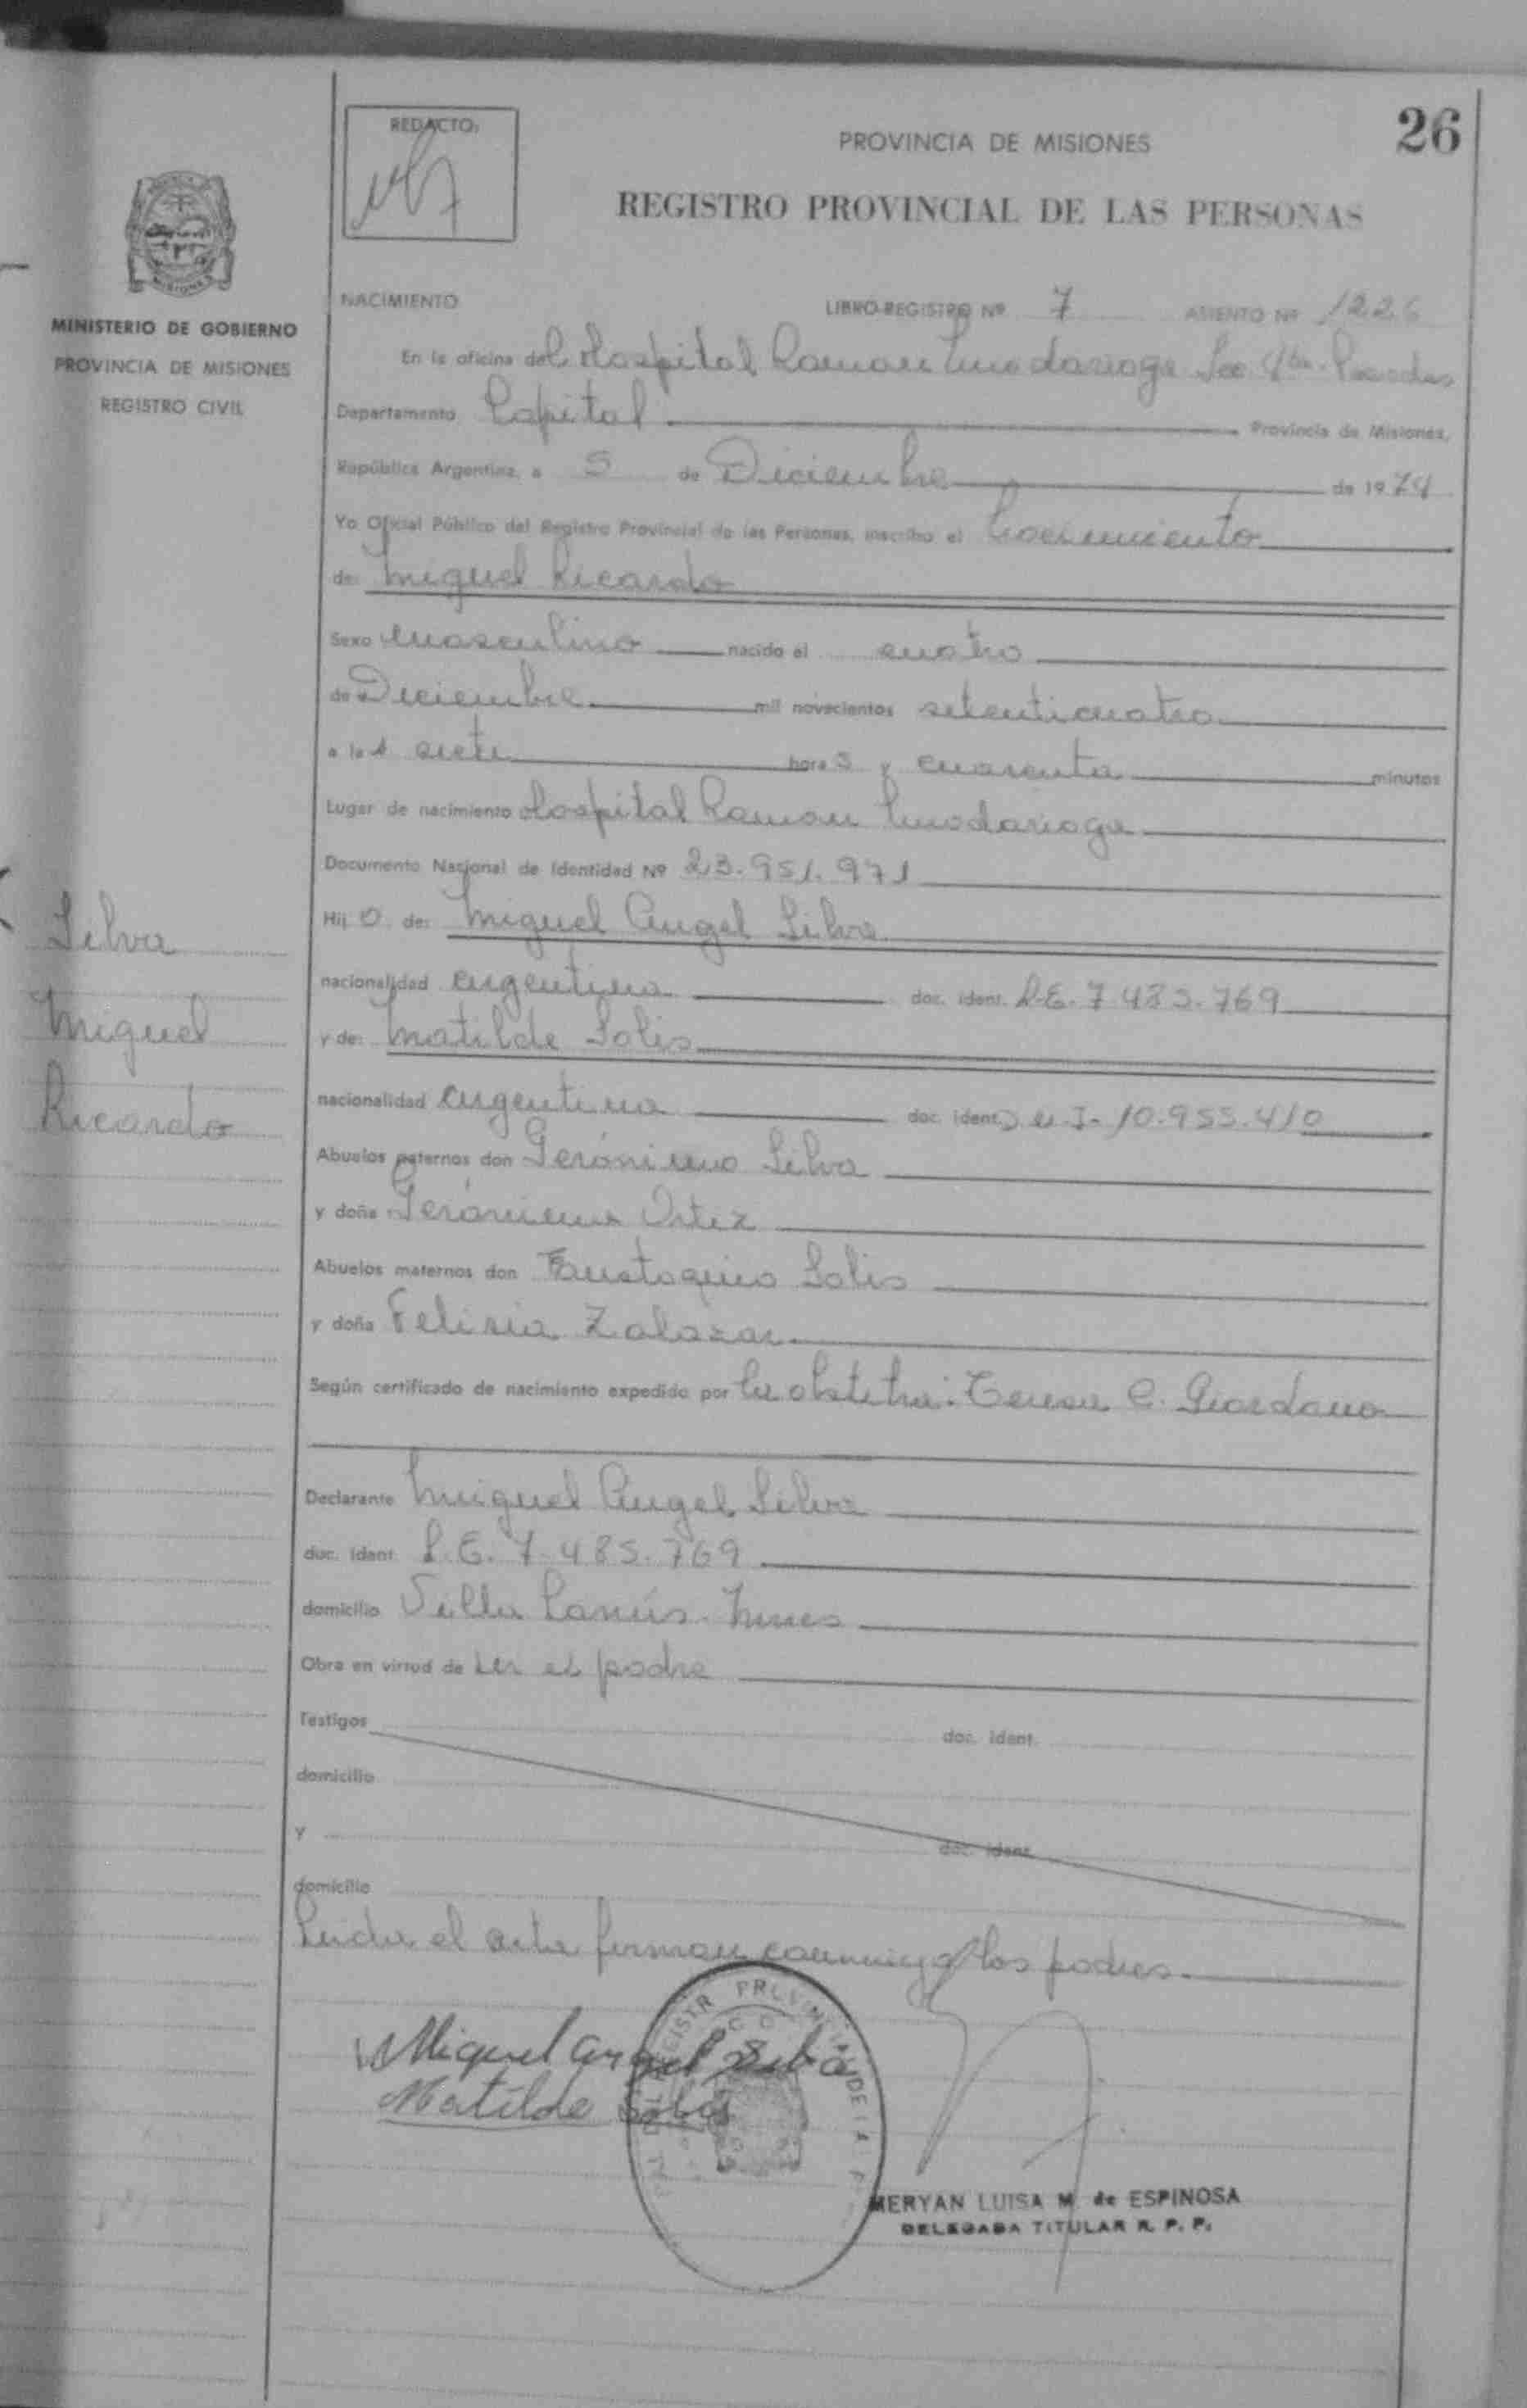 26
REDACTO:
PROVINCIA DE MISIONES
REGISTRO PROVINCIAL DE LAS PERSONAS
MISIONES
MINISTERIO DE GOBIERNO
PROVINCIA DE MISIONES
REGISTRO CIVIL
NACIMIENTO LIBRO-REGISTRO Nº 7 ASIENTO Nº 1226
En la oficina del Hospital Ramon Madariaga Sec. Posadas
Departamento Capital Provincia de Misiones,
República Argentina, a 5 de Diciembre de 1974
Yo Oficial Público del Registro Provincial de las Personas, inscribo el Nacimiento
de: Miguel Ricardo
Sexo masculino nacido el cuatro
de Diciembre mil novecientos setenticuatro
a las siete horas y cuarenta minutos
Lugar de nacimiento Hospital Ramon Madariaga
Documento Nacional de Identidad Nº 23.951.971
Hijo de: Miguel Angel Silva
nacionalidad argentina doc. ident. L.E. 7.485.769
y de: Matilde Solis
nacionalidad argentina doc. ident. D.N.I. 10.955.410
Abuelos paternos don Gerónimo Silva
y doña Gerónima Ortiz
Abuelos maternos don Eustaquio Solis
y doña Felisia Zalazar
Según certificado de nacimiento expedido por la obstetra: Teresa C. Giordano
Declarante Miguel Angel Silva
doc. ident. L.E. 7.485.769
domicilio Villa Lanús. Mnes
Obra en virtud de ser el padre
Testigos doc. ident.
domicilio
y doc. ident.
domicilio
Leida el acta firman conmigo los padres.
Silva
Miguel
Ricardo
Miguel Angel Silva
Matilde Solis
MERYAN LUISA M. de ESPINOSA
DELEGADA TITULAR R. P. P.